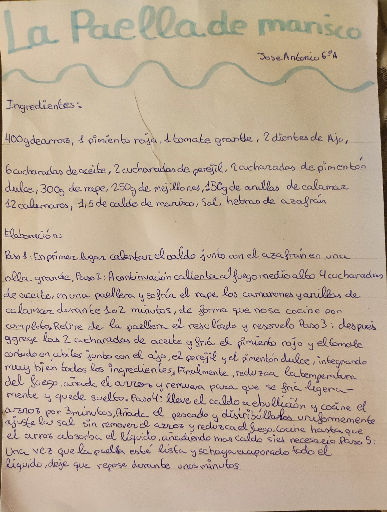 La Paella de marisco
Jose Antonio 6ºA
Ingredientes:
400g de arroz, 1 pimiento rojo, 1 tomate grande, 2 dientes de Ajo,
6 cucharadas de aceite, 2 cucharadas de perejil, 2 cucharadas de pimentón
dulce, 300g de rape, 250g de mejillones, 150g de anillas de calamar
12 calamares, 1,5 de caldo de marisco, Sal, hebras de azafrán
Elaboración:
Paso 1: En primer lugar calentar el caldo junto con el azafrán en una
olla grande, Paso 2: A continuación calienta a fuego medio alto 4 cucharadas
de aceite, en una paellera y sofría el rape los camarones y anillas de
calamar durante 1 o 2 minutos, de forma que nosa cocine por
completo, Retire de la paellera el pescado y reservelo Paso 3: despues
agrege las 2 cucharadas de aceite y fría el pimiento rojo y el tomate
cortado en junto con el ajo, el perejil y el pimentón dulce, integrando
muy bien todos los ingredientes, Finalmente, reduzca la temperatura
del fuego, añada el arroz y remueva para que se fría ligera-
mente y quede suelto. Paso 4: lleve el caldo a ebullición y cocine el
arroz por 3 minutos, Añada el pescado y uniformemente
ajuste la sal sin remover el arroz y reduzca el fuego. Cocine hasta que
el arroz absorba el líquido, añadiendo mas caldo si es necesario Paso 5:
Una vez que la paella esté lista y se haya evaporado todo el
líquido, deje que repose durante unos minutos.